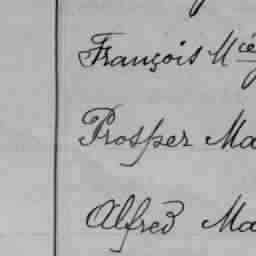 François Mcié
Prosper Ma
Alfred Ma